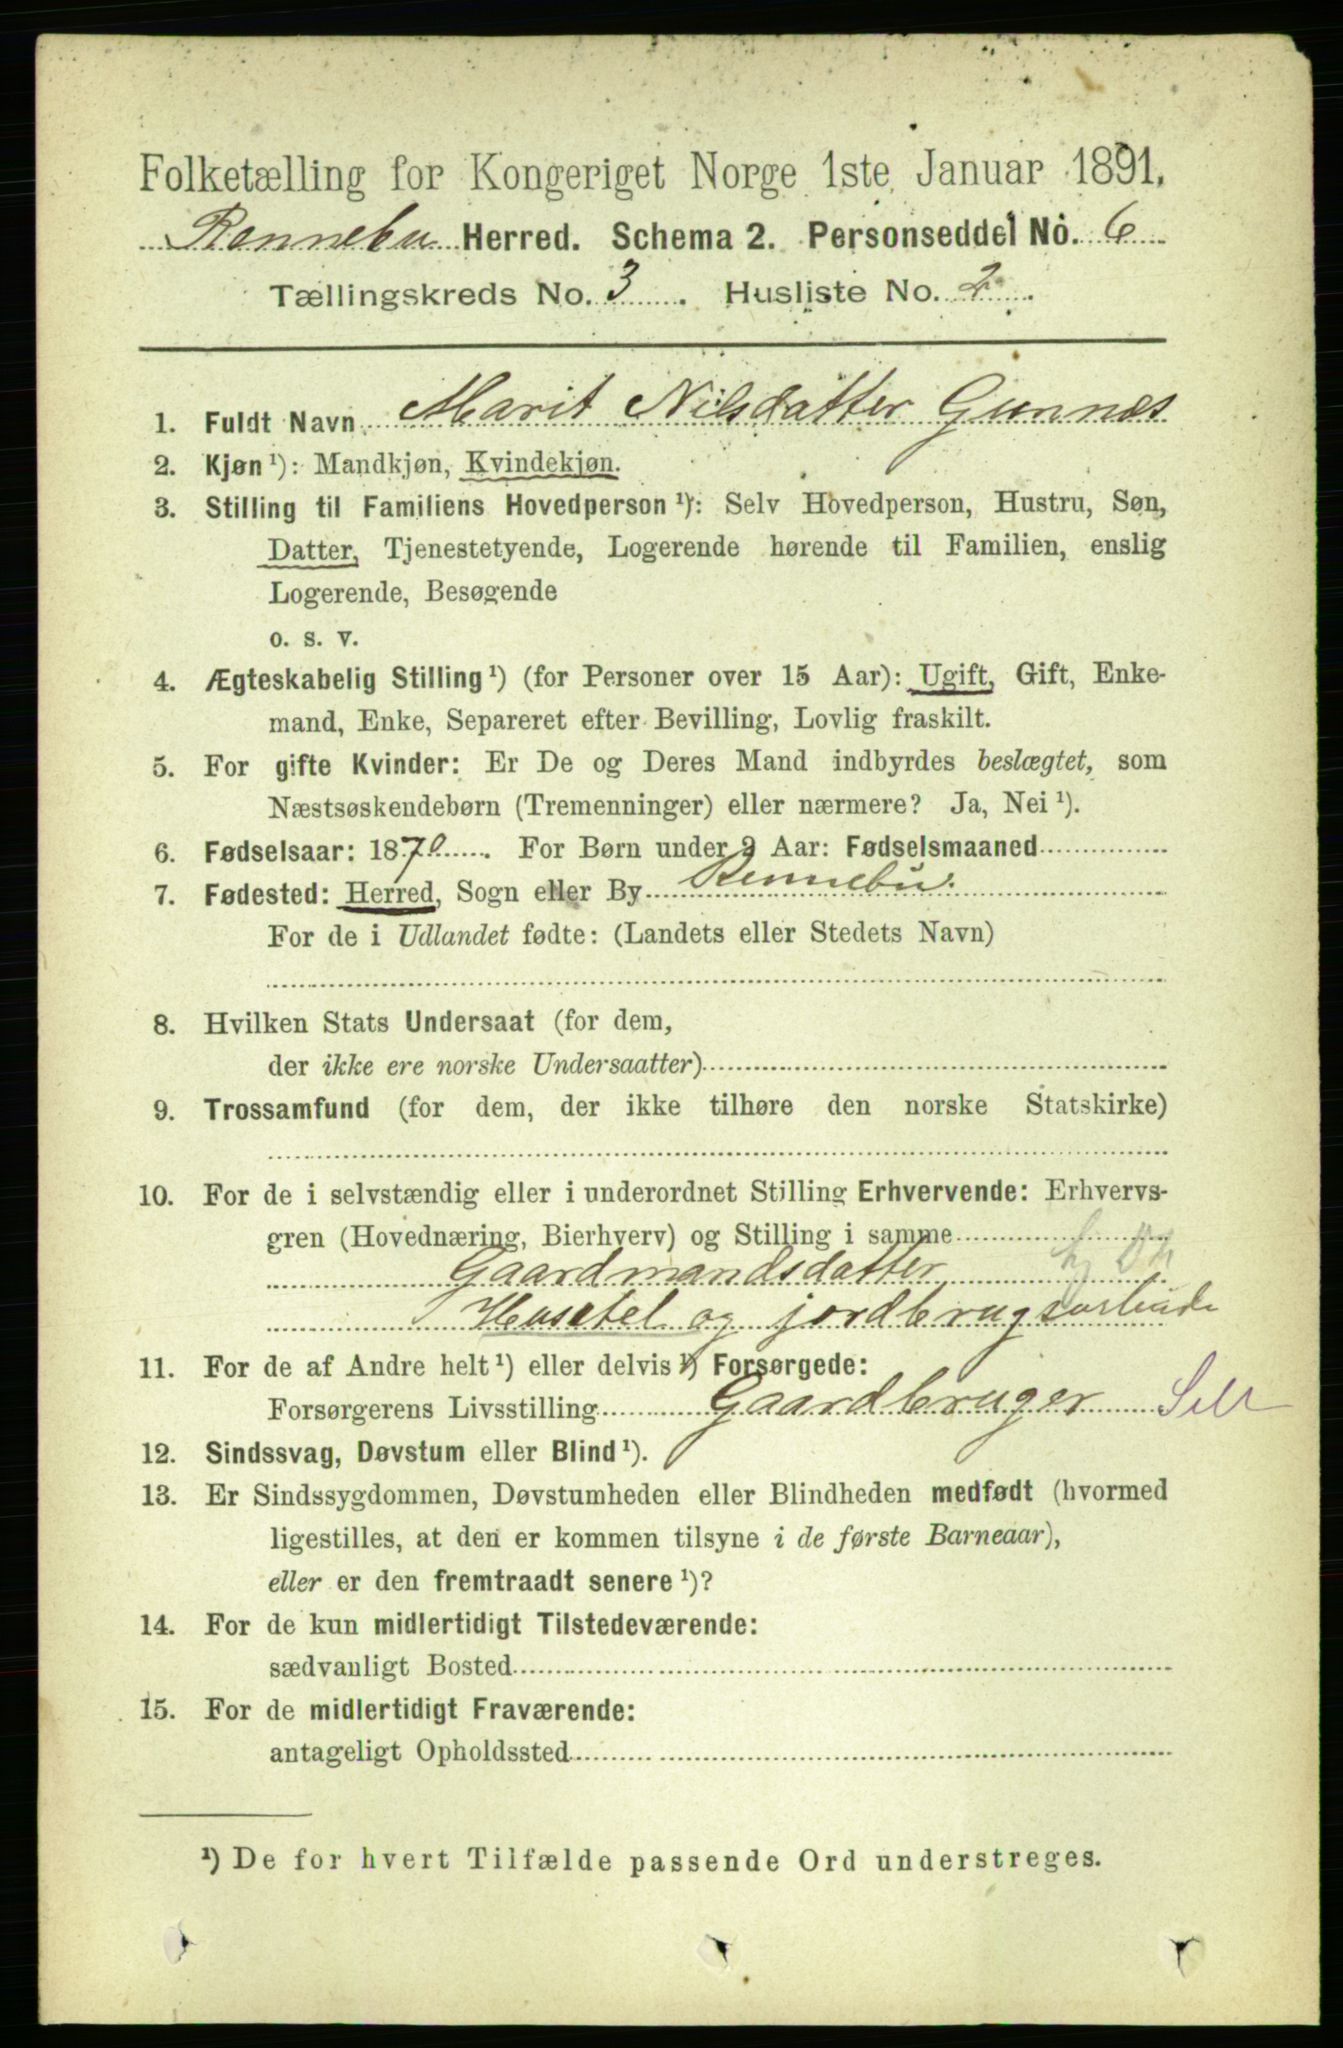 Folketælling for Kongeriget Norge 1ste Januar 1891.
Rennebu Herred. Schema 2. Personseddel No. 6
Tællingskreds No. 3. Husliste No. 2.
1. Fuldt Navn Marit Nilsdatter Gunnes
2. Kjøn ¹): Mandkjøn, Kvindekjøn.
3. Stilling til Familiens Hovedperson ¹): Selv Hovedperson, Hustru, Søn,
Datter, Tjenestetyende, Logerende hørende til Familien, enslig
Logerende, Besøgende
o. s. v.
4. Ægteskabelig Stilling ¹) (for Personer over 15 Aar): Ugift, Gift, Enke-
mand, Enke, Separeret efter Bevilling, Lovlig fraskilt.
5. For gifte Kvinder: Er De og Deres Mand indbyrdes beslægtet, som
Næstsøskendebørn (Tremenninger) eller nærmere? Ja, Nei ¹).
6. Fødselsaar: 1870. For Børn under 2 Aar: Fødselsmaaned
7. Fødested: Herred, Sogn eller By Rennebu.
For de i Udlandet fødte: (Landets eller Stedets Navn)
8. Hvilken Stats Undersaat (for dem,
der ikke ere norske Undersaatter)
9. Trossamfund (for dem, der ikke tilhøre den norske Statskirke)
10. For de i selvstændig eller i underordnet Stilling Erhvervende: Erhvervs-
gren (Hovednæring, Bierhverv) og Stilling i samme
Gaardmandsdatter
Husstel og jordbrugsarbeide
11. For de af Andre helt ¹) eller delvis ¹) Forsørgede:
Forsørgerens Livsstilling Gaardbruger
12. Sindssvag, Døvstum eller Blind ¹).
13. Er Sindssygdommen, Døvstumheden eller Blindheden medfødt (hvormed
ligestilles, at den er kommen tilsyne i de første Barneaar),
eller er den fremtraadt senere ¹)?
14. For de kun midlertidigt Tilstedeværende:
sædvanligt Bosted
15. For de midlertidigt Fraværende:
antageligt Opholdssted
¹) De for hvert Tilfælde passende Ord understreges.